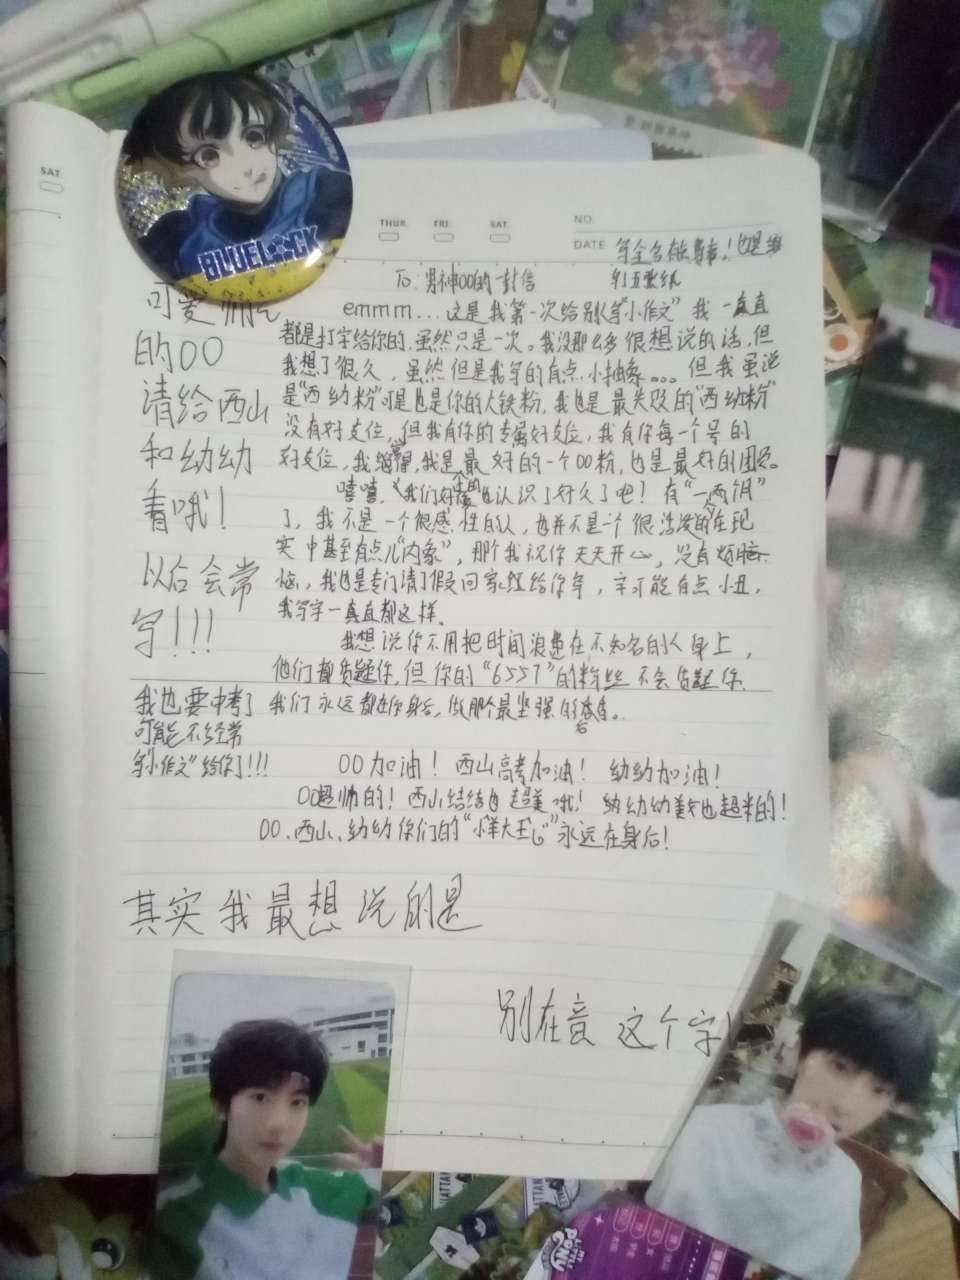 SAT.
BLUELOCK
THUR. FRI. SAT.
NO.
DATE
To: 男神OO的一封信
emmm...这是我第一次给别人写"小作文" 我一直
都是打字给你的,虽然只是一次。我没那么多很想说的话,但
我想了很久,虽然但是我写的有点小抽象。。。但我虽说
是"西幼粉"可是也是你的大铁粉,我也是最失败的"西幼粉"
没有好友位,但我有你的专属好友位,我有你每一个号的
好友位,我觉得,我是最好的一个OO粉,也是最好的团员。
嘻嘻,我们好像也认识了好久了吧!有"一两个月"
了,我不是一个很感性的人,也并不是一个很活泼的在现
实中甚至有点儿"内象",那个我祝你天天开心,没有烦恼
恼,我也是专门请了假回家给你写,字可能有点小丑,
我写字一直都这样。
我想说你不用把时间浪费在不知名的人身上,
他们都质疑你,但你的"6557"的粉丝不会质疑你
我们永远都在你身后,做那个最坚强的后盾。
可爱
的OO
请给西山
和幼幼
看哦!
以后会常
写!!!
我也要中考了
可能不经常
写"小作文"给你了!!!
OO加油! 西山高考加油! 幼幼加油!
OO超帅的! 西山结结也超美哦! 幼幼也超美的!
OO、西山、幼幼你们的"小羊大王"永远在身后!
其实我最想说的是
别在意 这个字!
MY LITTLE PONY